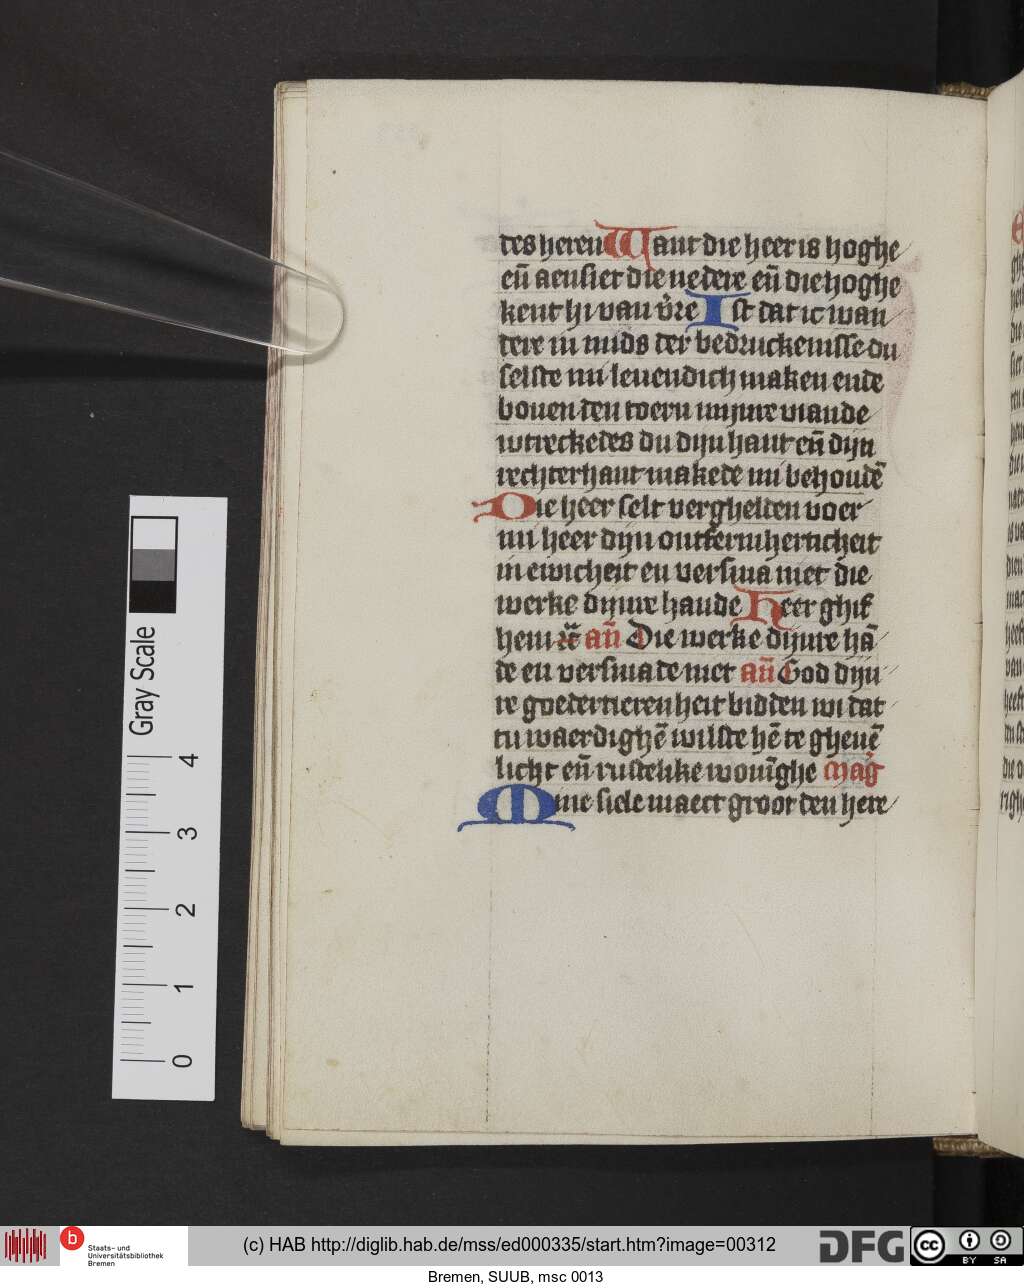 des heren Want die heer is hoghe
eñ aensiet die nedere eñ die hoghe
kent hi van v̉re Ist dat ic wan
dere in mids der bedruckenisse du
selste mi leuendich maken ende
bouen den toern mijnre viande
wtreckedes du dijn hant eñ dijn
rechterhant makede mi behoudē
Die heer selt verghelden voer
mi heer dijn ontfermherticheit
in ewicheit en versma niet die
werke dijnre hande Heer ghif
hem r̄e an̄ Die werke dijnre hā
de en versmade niet an̄ God dijn
re goedertierenheit bidden wi dat
tu waerdighē wilste hē te gheuē
licht eñ rustelike woūīghe Mag̉
Mine siele maect groot den here
Gray Scale
4
3
2
1
0
b
Staats- und
Universitätsbibliothek
Bremen
(c) HAB http://diglib.hab.de/mss/ed000335/start.htm?image=00312
DFG
cc BY SA
Bremen, SUUB, msc 0013